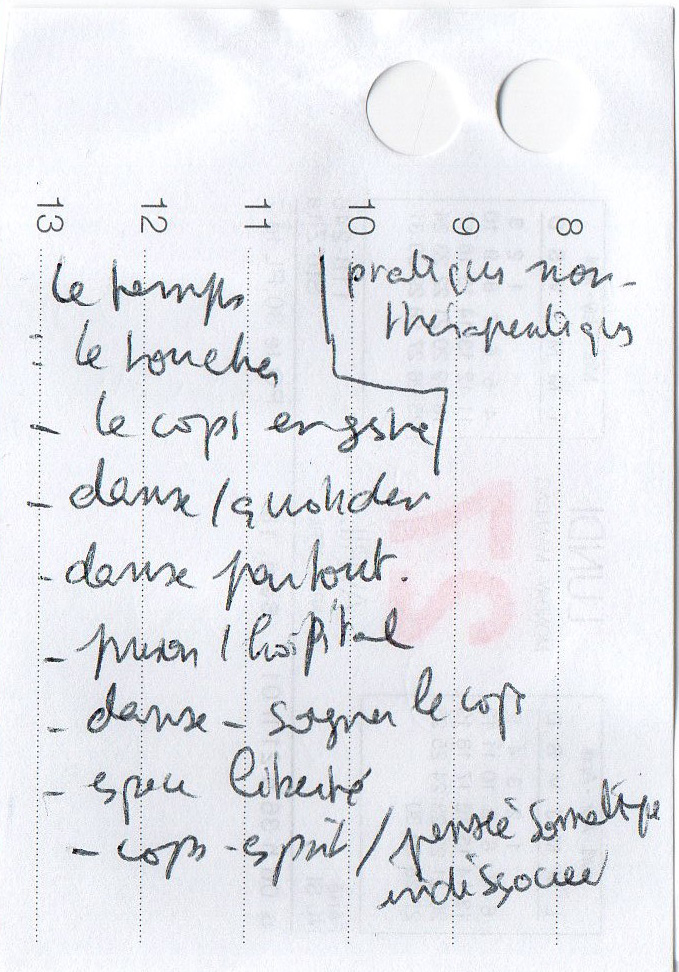 13 12 11 10 9 8
le temps
pratiques non-
thérapeutiques
- le toucher
- le corps
- danse / quotidien
- danse partout.
- prison / hôpital
- danse - soigner le corps
- espace liberté
- corps-esprit / pensée somatique
indissociée
27
LUNDI